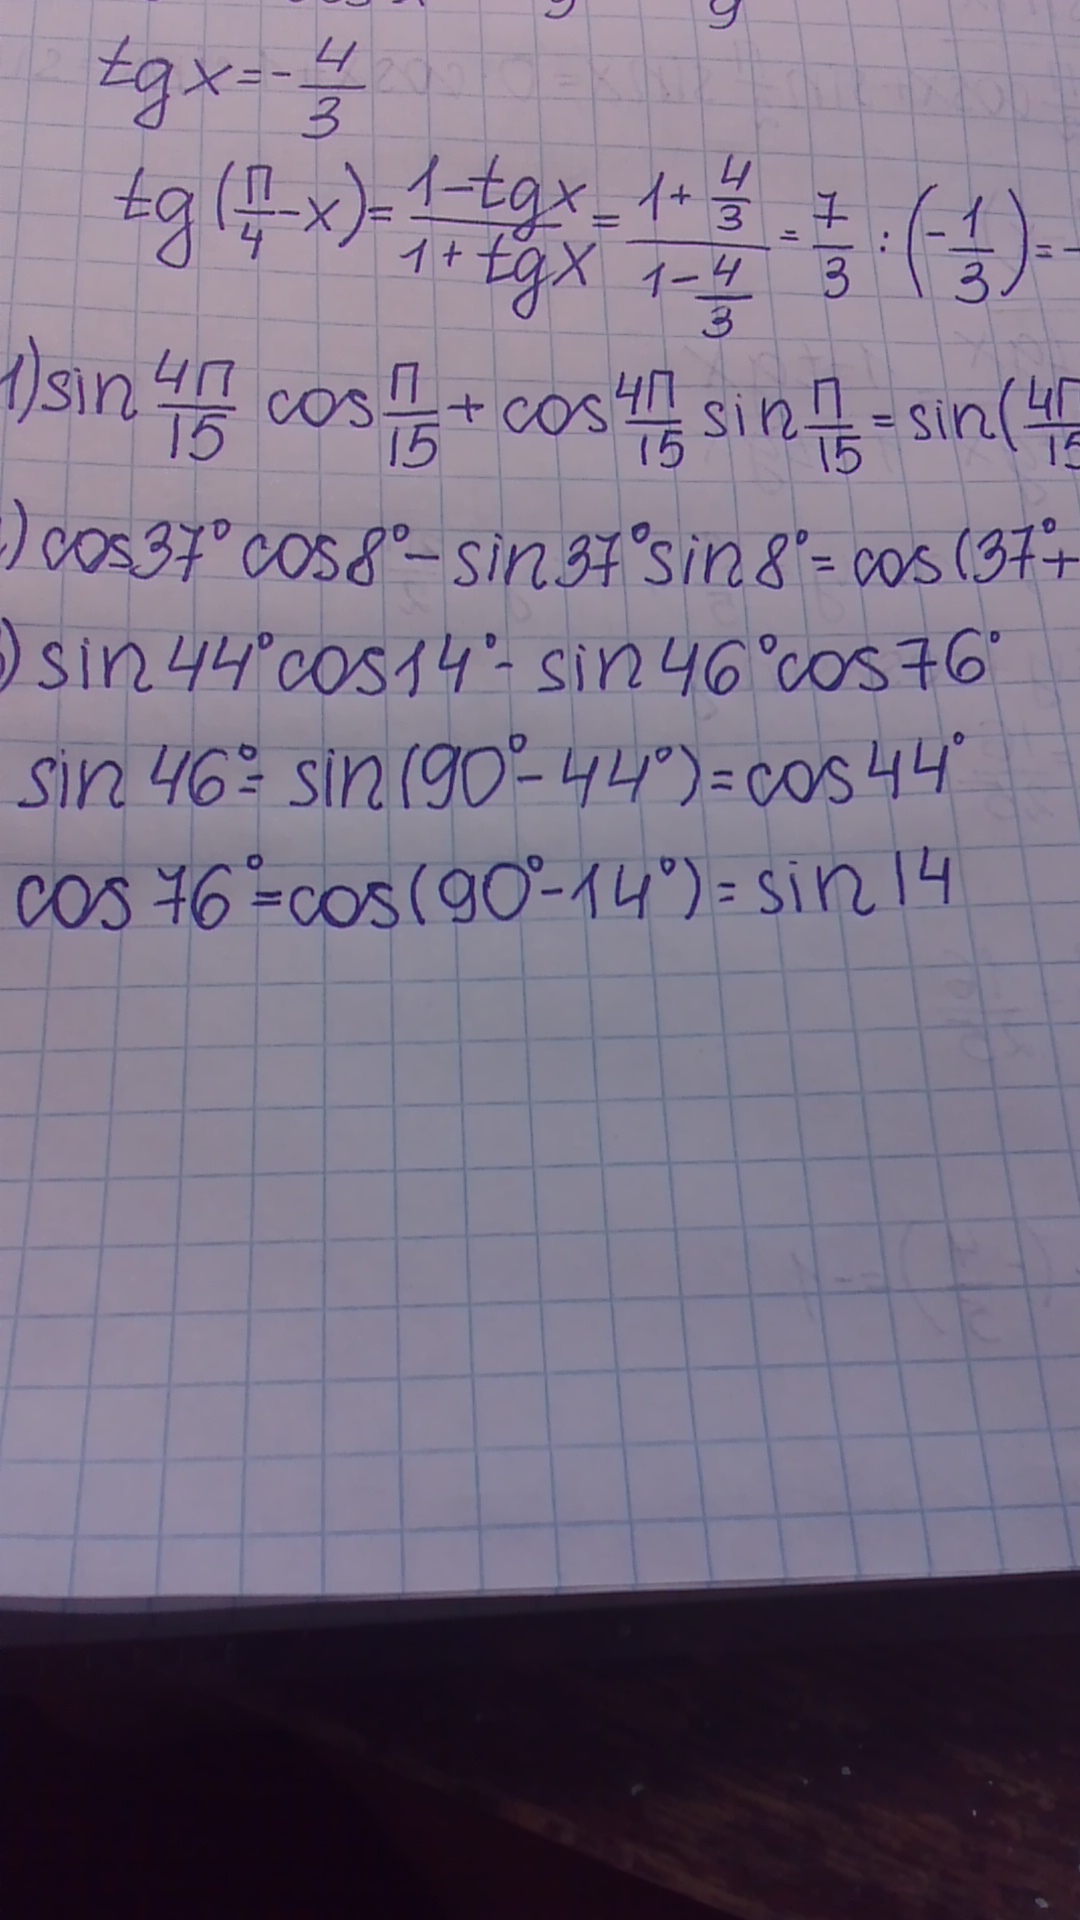 tg x = - 4/3
tg (π/4 - x) = (1 - tg x)/(1 + tg x) = (1 + 4/3)/(1 - 4/3) = 7/3 : (- 1/3) = -
1) sin 4π/15 cos π/15 + cos 4π/15 sin π/15 = sin (4π/15
) cos 37° cos 8° - sin 37° sin 8° = cos (37° +
) sin 44° cos 14° - sin 46° cos 76°
sin 46° = sin (90° - 44°) = cos 44°
cos 76° = cos (90° - 14°) = sin 14